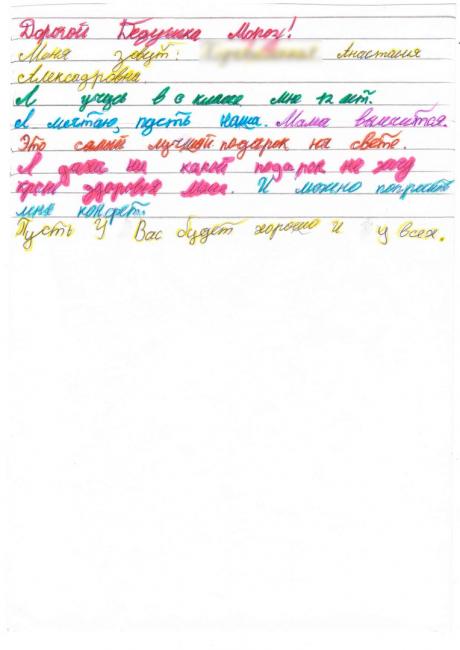 Дорогой Дедушка Мороз!
Меня зовут: Анастасия
Александровна.
Я учусь в 6 классе мне 12 лет.
Я мечтаю, пусть наша. Мама вылечится.
Это самый лучший подарок на свете.
Я даже ни какой подарок не хочу
кроме здоровья маме. И можно попросить
мне конфет.
Пусть У Вас будет хорошо и у всех.